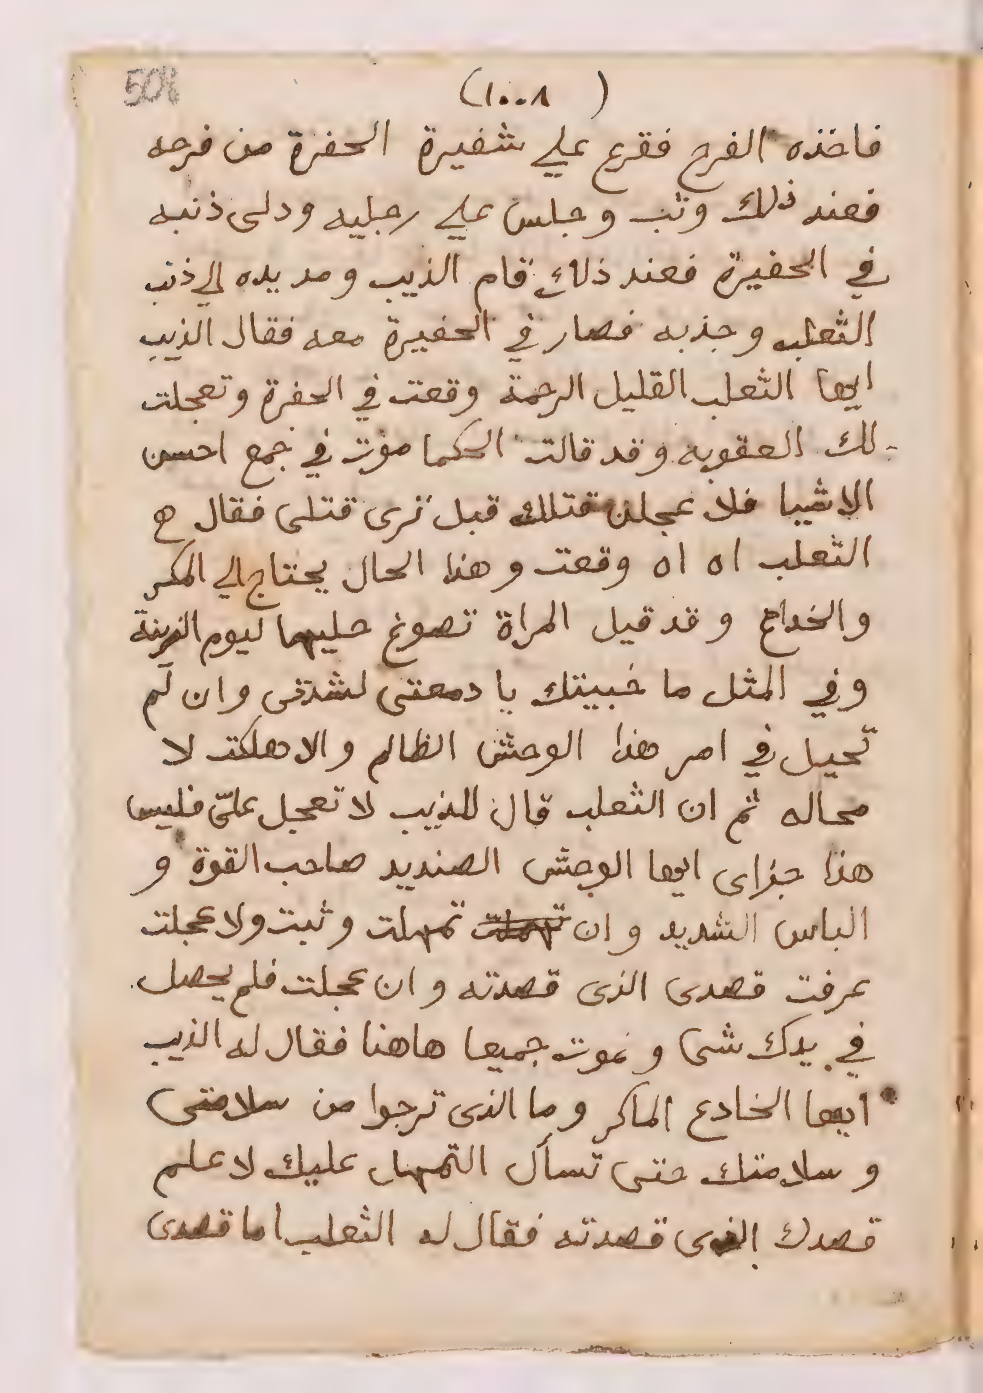 508
(١٠٠٨)
فاخذه الفرح فقرع علي شفيرة الحفرة من فرحه
فعند ذلك وثب وجلس علي رجليه ودلى ذنبه
في الحفيرة فعند ذلك قام الذيب ومد يده الي ذنب
الثعلب وجذبه فصار في الحفيرة معه فقال الذيب
ايها الثعلب القليل الرحمة وقعت في الحفرة وتعجلت
لك العقوبه وقد قالت الحكما موت في جمع احسن
الاشيا فلا عجلن قتلك قبل ترى قتلى فقال
الثعلب اه اه وقعت وهذا الحال يحتاج الي المكر
والخداع وقد قيل المراة تصوغ حليها ليوم الزينة
وفي المثل ما خبيتك يا دمعتى لشدتى وان لم
تحيل في امر هذا الوحش الظالم والا هلكت لا
محاله ثم ان الثعلب قال للذيب لا تعجل علىّ فليس
هذا جزاى ايها الوحش الصنديد صاحب القوة و
الباس الشديد وان تمهلت وثبت ولا عجلت
عرفت قصدى الذى قصدته وان عجلت فلم يحصل
في يدك شى ونموت جميعا هاهنا فقال له الذيب
ايها الخادع الماكر وما الذى ترجوا من سلامتى
وسلامتك حتى تسأل التمهل عليك لا علم
قصدك الذى قصدته فقال له الثعلب اما قصدى